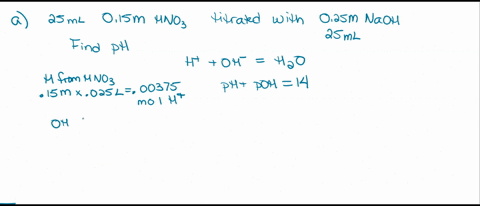 a) 25mL 0.15m HNO3 titrated with 0.25m NaOH
25mL
Find pH
H+ + OH- = H2O
pH + pOH = 14
M from HNO3
.15m x .025L = .00375
mol H+
OH